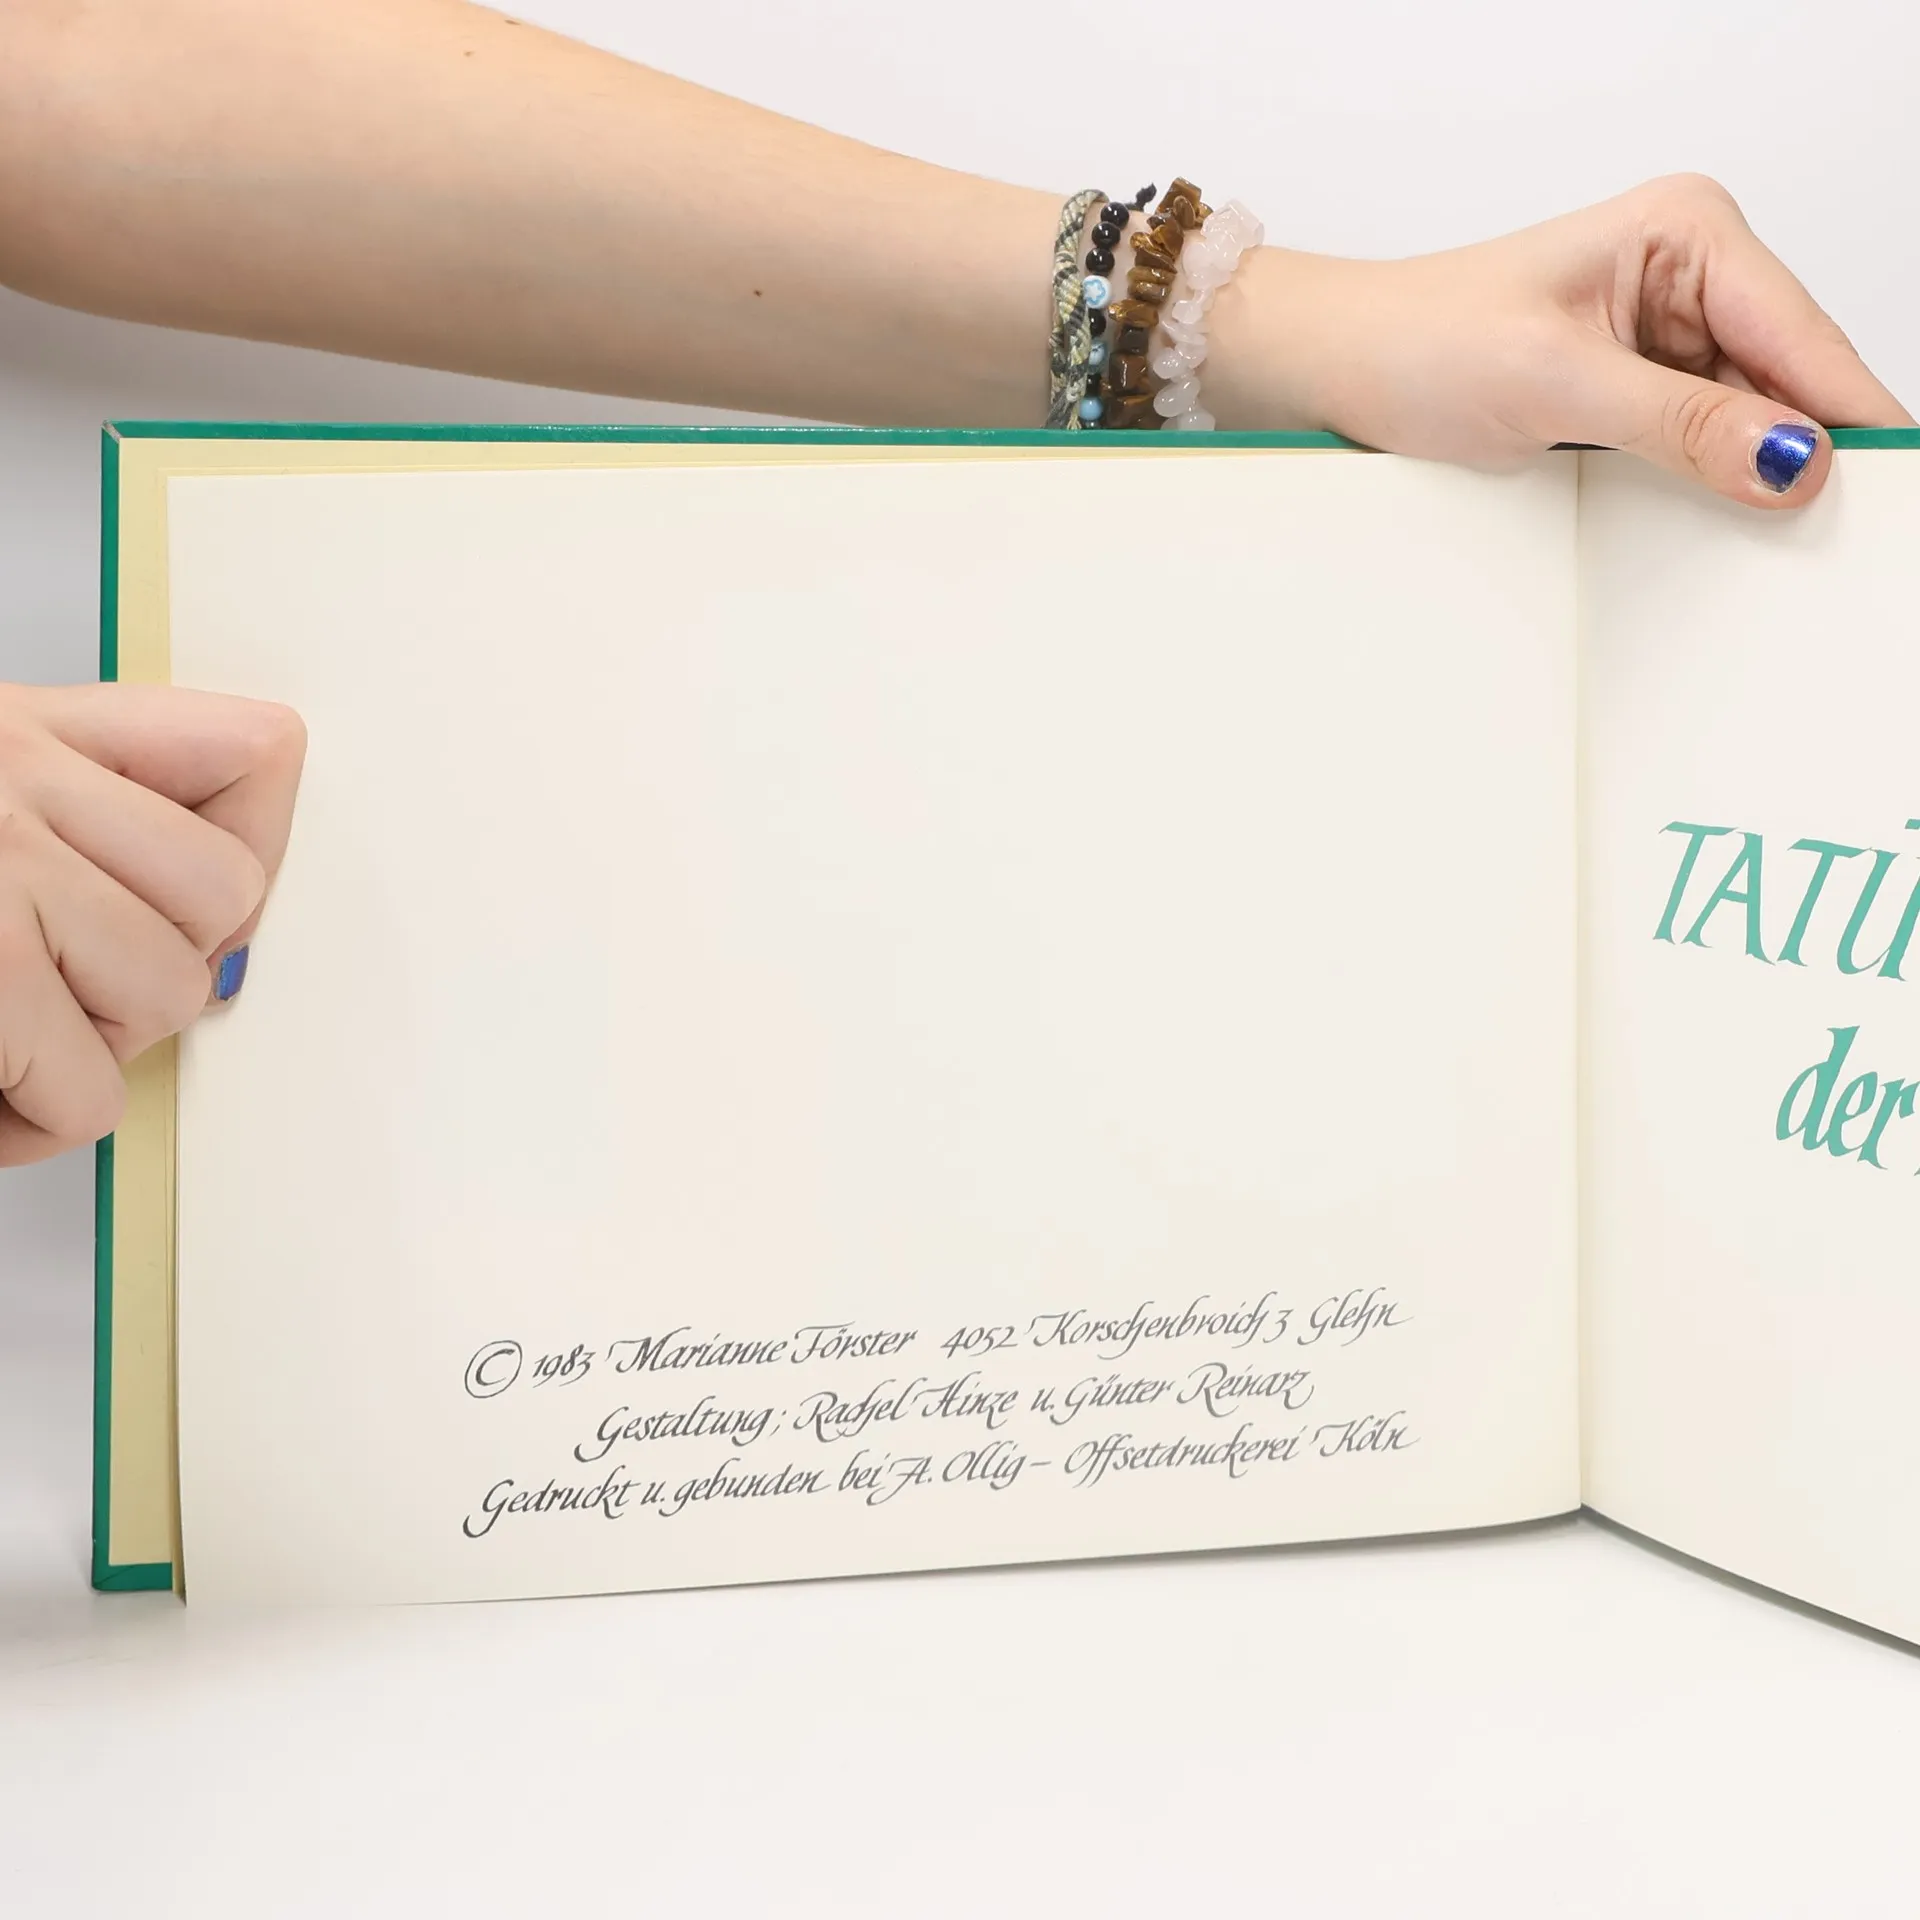 © 1983 Marianne Förster 4052 Korschenbroich 3 Glehn
Gestaltung; Rachel Hinze u. Günter Reinarz
Gedruckt u. gebunden bei A. Ollig – Offsetdruckerei Köln
TATÜ
der